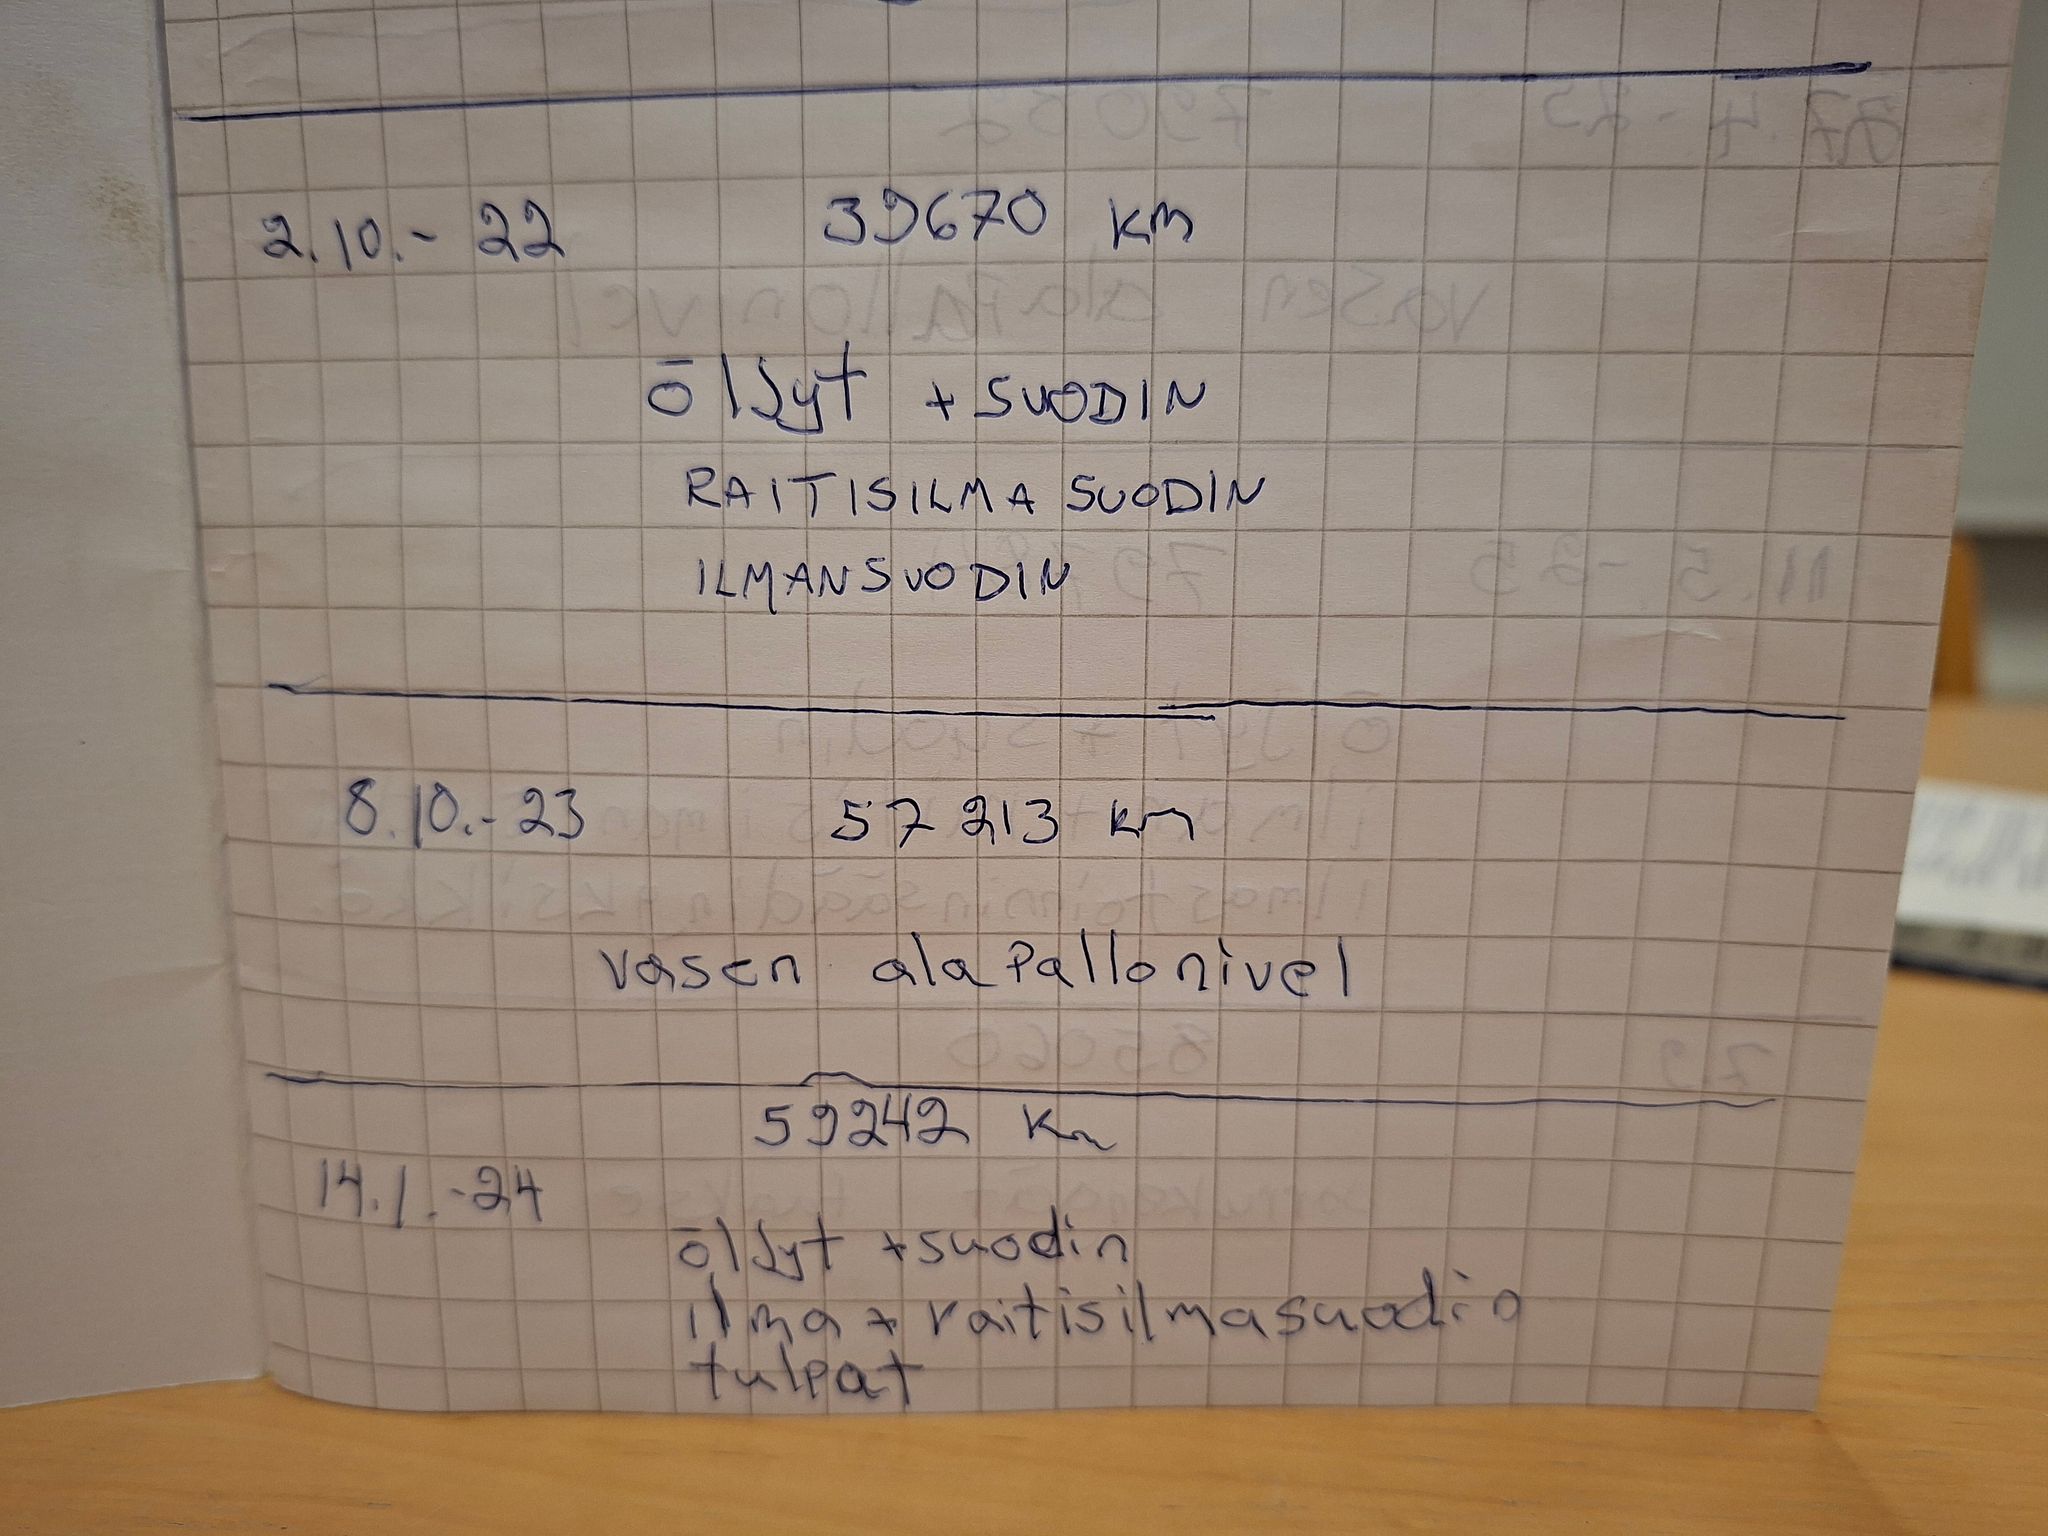 2.10.-22 39670 km
öljyt + SUODIN
RAITISILMASUODIN
ILMANSUODIN
8.10.-23 57 213 km
vasen alapallonivel
59242 km
14.1.-24
öljyt + suodin
ilma + raitisilmasuodin
tulpat